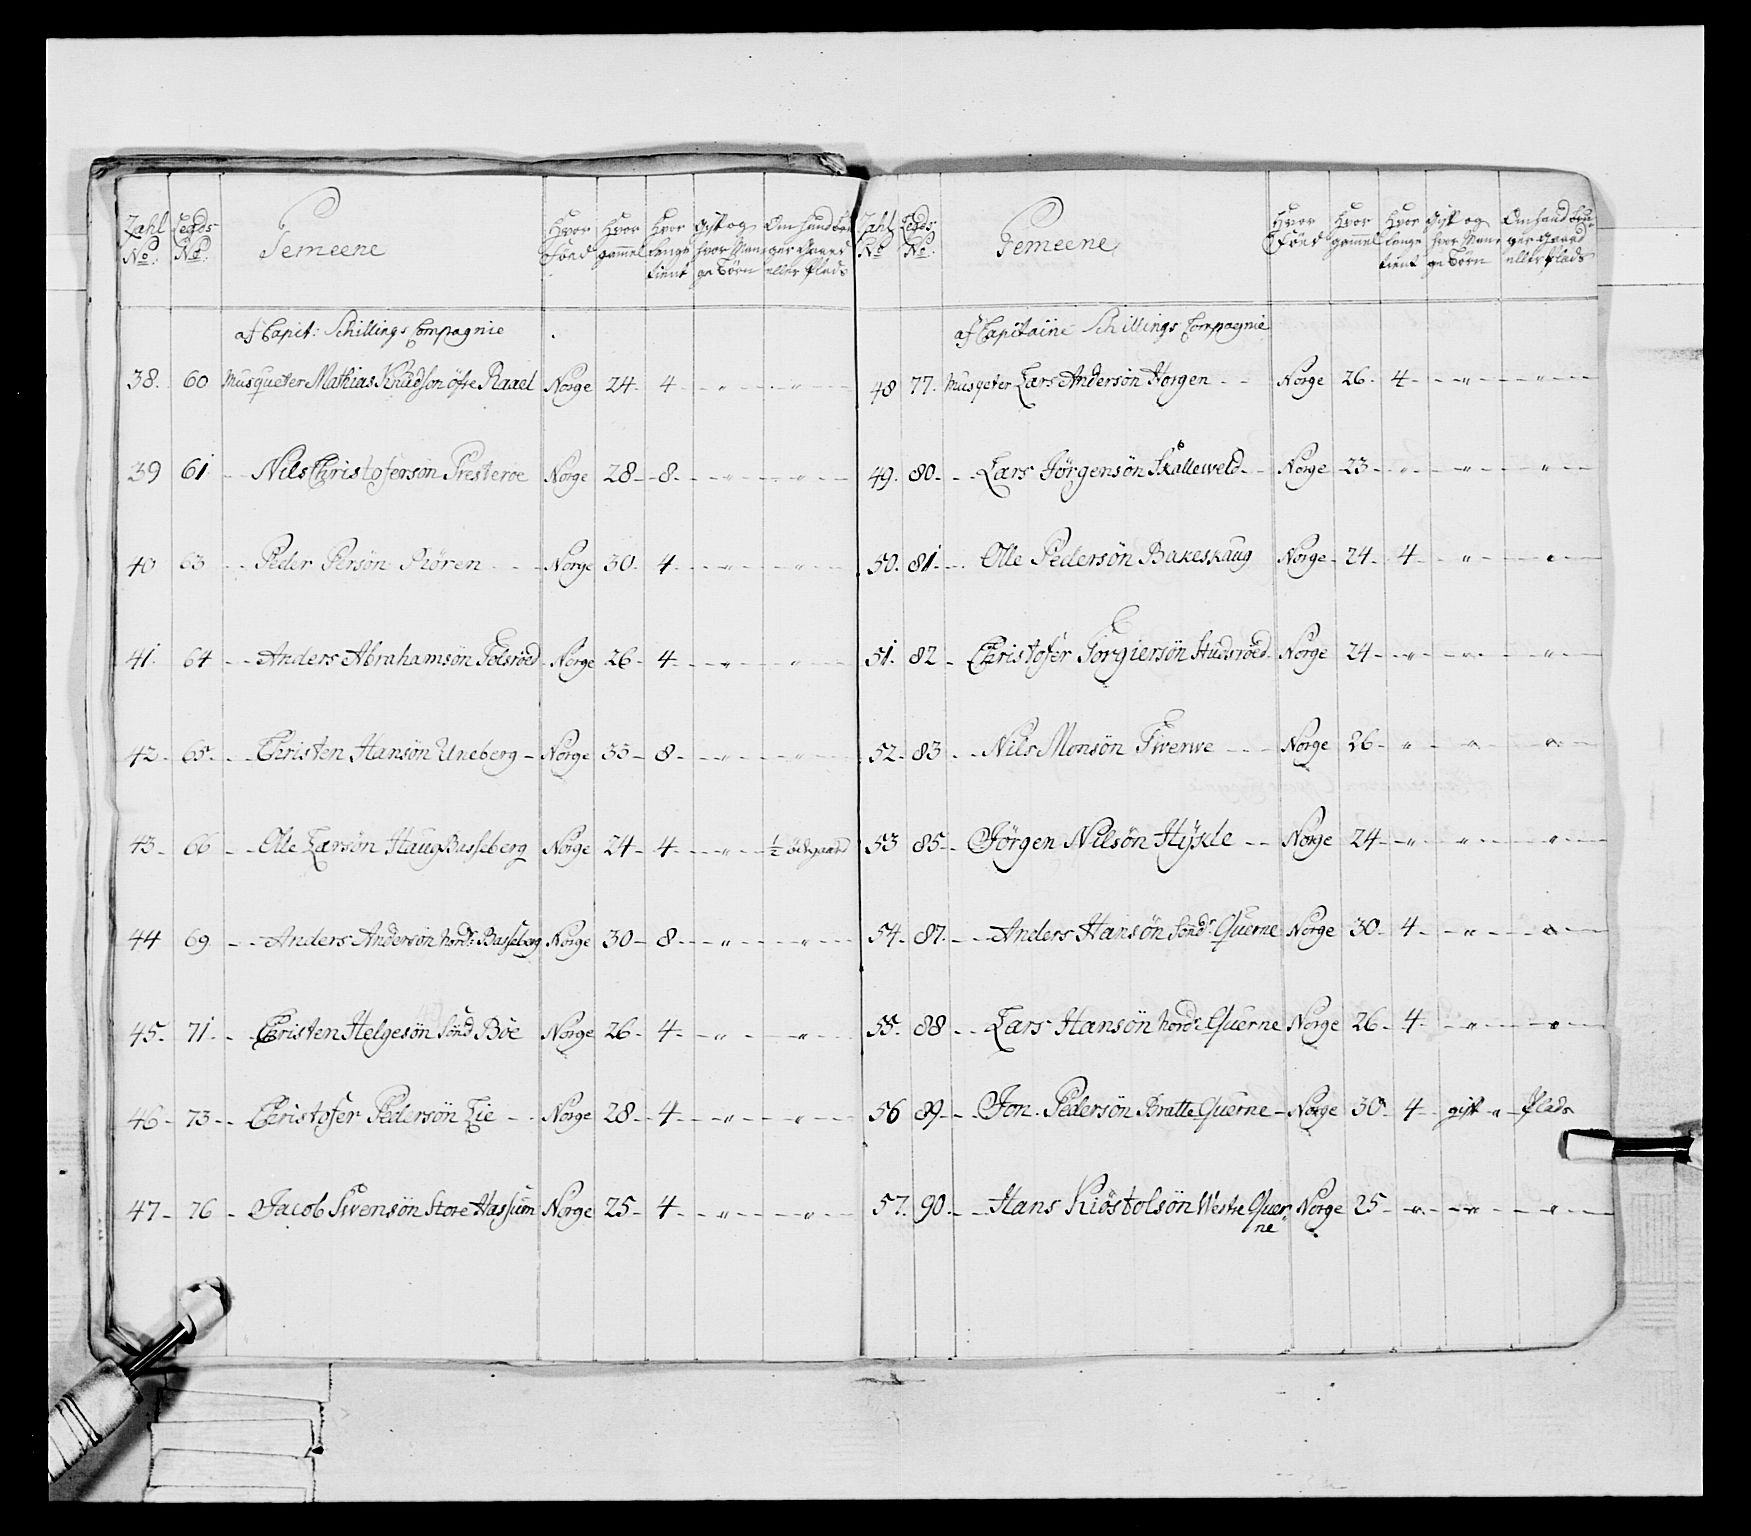 Zahl No. Legds No. Gemeene Hvor Föed Hvor gammel Hvor lenge tient Gift og hvor Mange Börn Om hand bruger Gaard eller Plads
af Capit: Schillings Compagnie
38. 60 Musqueter Mathias Knudson öfre Raael Norge 24 - 4 - " - " -
39 61 - Nils Christofersön Presteroe Norge 28 - 8 - " - " -
40 63 - Peder Persön Rören - Norge 30 - 4 - " - " -
41. 64 - Anders Abrahamsön Tolsröed - Norge 26 - 4 - " - " -
42 - 65 - Christen Hansön Uneberg - Norge 33 - 8 - " - " -
43 - 66 - Olle Larsön Haug Basseberg Norge 24 - 4 - " - ½ ödegaard
44 69 - Anders Andersön Nordr. Basseberg Norge 30 - 8 - " - " -
45 - 71 - Christen Helgesön Sönd Böe Norge 26 - 4 - " - " -
46 - 73 - Christofer Pedersön Lie - Norge 28 - 4 - " - " -
47 - 76 - Jacob Svensön Store Hassum Norge 25 - 4 - " - " -
Zahl No Legds No. Gemeene Hvor Föed Hvor gamel Hvor lenge tient Gift og hvor Mange Börn Om hand bruger Gaard eller Plads
af Capitaine Schillings Compagnie
48 77. Musqeter Lars Andersön Horgen - - Norge 26 - 4 - " - " -
49. 80 - Lars Jörgensön Skalleveld - Norge 23 - " - " - " -
50. 81 - Olle Pedersön Bakeskaug Norge - 24 - 4 - " - " -
51. 82 - Christofer Torgiersön Hudsröed Norge 24 - " - " - " -
52 - 83 - Nils Monsön Twerwe - - Norge 26 - " - " - " -
53 85 - Jörgen Nilsön Hÿkle - - Norge 24 - " - " - " -
54 - 87. - Anders Hansön Söndr Querne Norge 30 - 4 - " - " -
55. 88 - Lars Hansön Nordr Querne Norge 26 - 4 - " - " -
56 89 - Jon Pedersön Bratte Querne - Norge 30 - 4 - gift " - Plads
57. 90 - Hans Kiöstolsön Westre Quer-
ne Norge 25 - " - " - " -